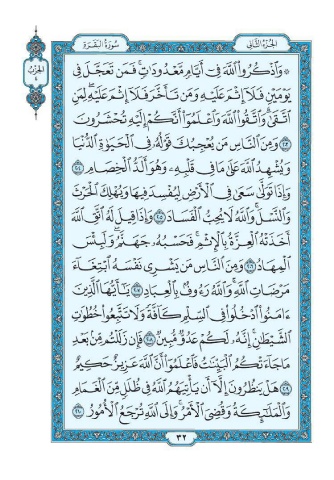 سُورَةُ البَقَرَةِ
الجُزْءُ الثَّانِي
الحِزْبُ
٤
۞ وَٱذْكُرُوا۟ ٱللَّهَ فِىٓ أَيَّامٍ مَّعْدُودَٰتٍ فَمَن تَعَجَّلَ فِى
يَوْمَيْنِ فَلَآ إِثْمَ عَلَيْهِ وَمَن تَأَخَّرَ فَلَآ إِثْمَ عَلَيْهِ لِمَنِ
ٱتَّقَىٰ وَٱتَّقُوا۟ ٱللَّهَ وَٱعْلَمُوٓا۟ أَنَّكُمْ إِلَيْهِ تُحْشَرُونَ
٢٠٣ وَمِنَ ٱلنَّاسِ مَن يُعْجِبُكَ قَوْلُهُۥ فِى ٱلْحَيَوٰةِ ٱلدُّنْيَا
وَيُشْهِدُ ٱللَّهَ عَلَىٰ مَا فِى قَلْبِهِۦ وَهُوَ أَلَدُّ ٱلْخِصَامِ ٢٠٤
وَإِذَا تَوَلَّىٰ سَعَىٰ فِى ٱلْأَرْضِ لِيُفْسِدَ فِيهَا وَيُهْلِكَ ٱلْحَرْثَ
وَٱلنَّسْلَ وَٱللَّهُ لَا يُحِبُّ ٱلْفَسَادَ ٢٠٥ وَإِذَا قِيلَ لَهُ ٱتَّقِ ٱللَّهَ
أَخَذَتْهُ ٱلْعِزَّةُ بِٱلْإِثْمِ فَحَسْبُهُۥ جَهَنَّمُ وَلَبِئْسَ
ٱلْمِهَادُ ٢٠٦ وَمِنَ ٱلنَّاسِ مَن يَشْرِى نَفْسَهُ ٱبْتِغَآءَ
مَرْضَاتِ ٱللَّهِ وَٱللَّهُ رَءُوفٌۢ بِٱلْعِبَادِ ٢٠٧ يَٰٓأَيُّهَا ٱلَّذِينَ
ءَامَنُوا۟ ٱدْخُلُوا۟ فِى ٱلسِّلْمِ كَآفَّةً وَلَا تَتَّبِعُوا۟ خُطُوَٰتِ
ٱلشَّيْطَٰنِ إِنَّهُۥ لَكُمْ عَدُوٌّ مُّبِينٌ ٢٠٨ فَإِن زَلَلْتُم مِّنۢ بَعْدِ
مَا جَآءَتْكُمُ ٱلْبَيِّنَٰتُ فَٱعْلَمُوٓا۟ أَنَّ ٱللَّهَ عَزِيزٌ حَكِيمٌ
٢٠٩ هَلْ يَنظُرُونَ إِلَّآ أَن يَأْتِيَهُمُ ٱللَّهُ فِى ظُلَلٍ مِّنَ ٱلْغَمَامِ
وَٱلْمَلَٰٓئِكَةُ وَقُضِىَ ٱلْأَمْرُ وَإِلَى ٱللَّهِ تُرْجَعُ ٱلْأُمُورُ ٢١٠
٣٢